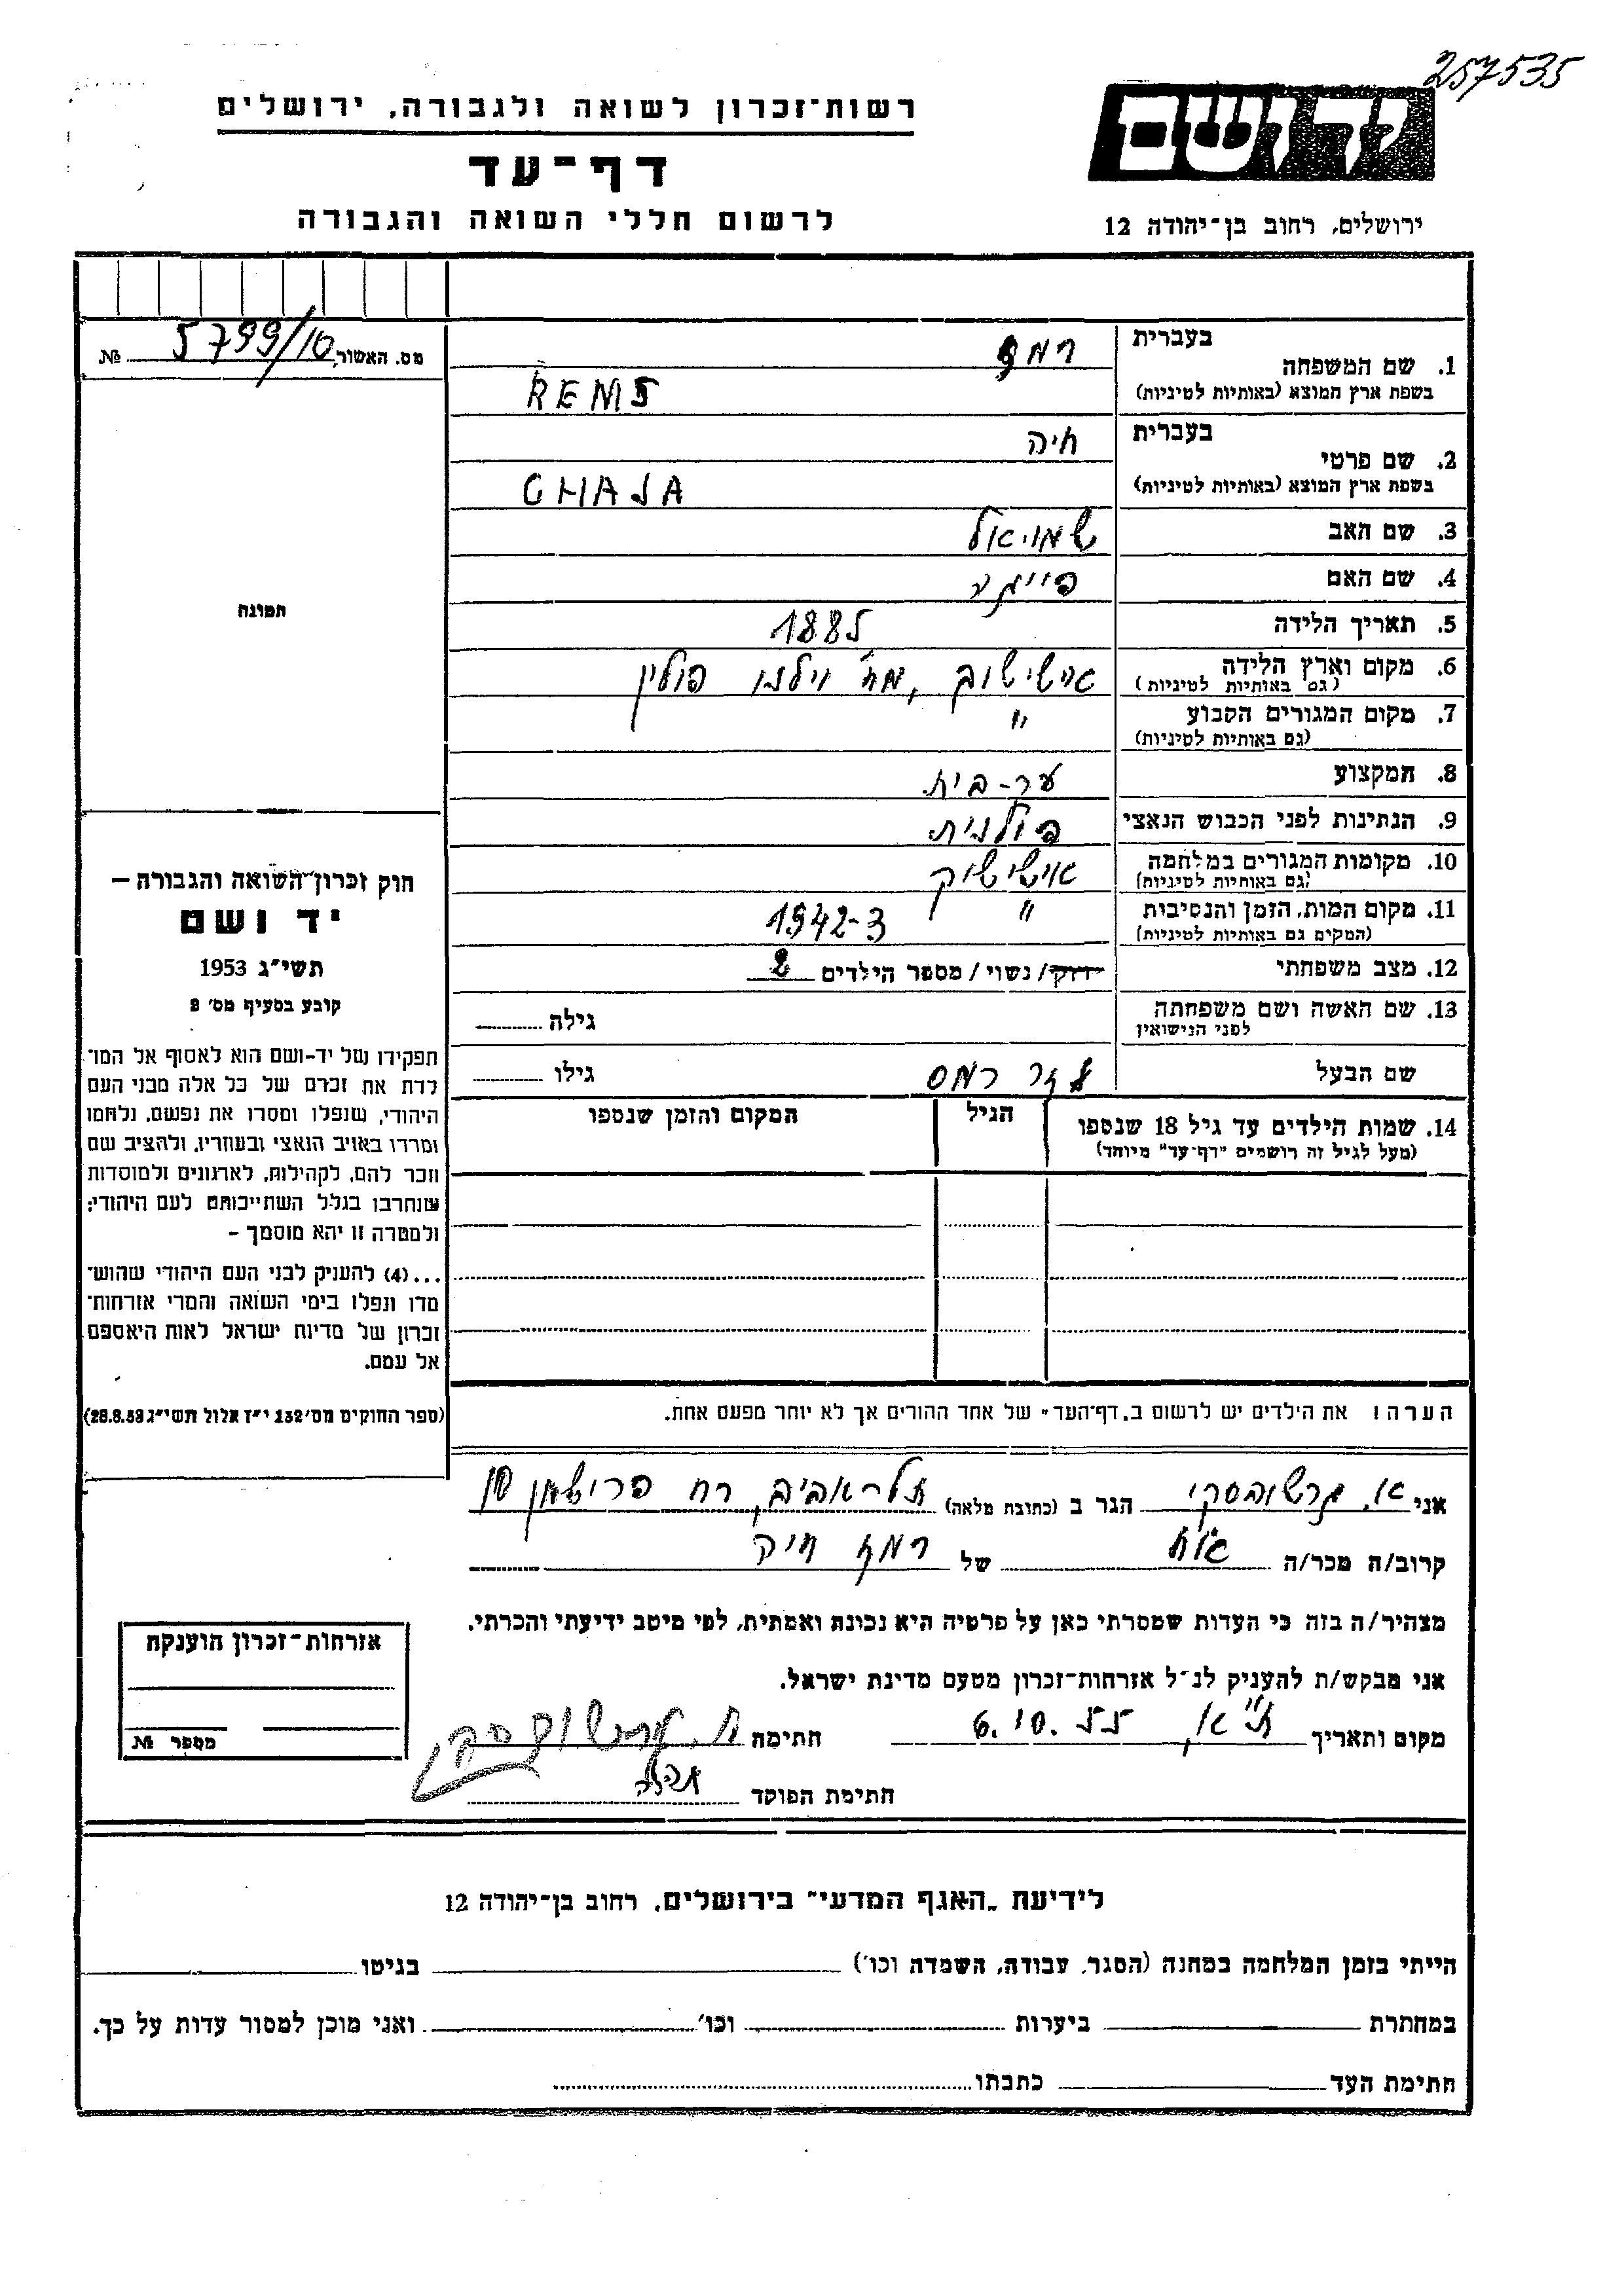 257535
יד ושם
רשות־זכרון לשואה ולגבורה, ירושלים
דף־עד
לרשום חללי השואה והגבורה
ירושלים, רחוב בן־יהודה 12
מס. האשור 5799/10 №
תמונה
1. שם המשפחה בעברית
בשפת ארץ המוצא (באותיות לטיניות) REMS
2. שם פרטי בעברית חיה
בשפת ארץ המוצא (באותיות לטיניות) CHAJA
3. שם האב שמויאל
4. שם האם
5. תאריך הלידה 1885
6. מקום וארץ הלידה , מח' וילנו פולין
(גם באותיות לטיניות)
7. מקום המגורים הקבוע "
(גם באותיות לטיניות)
8. המקצוע עק-בית
9. הנתינות לפני הכבוש הנאצי פולנית
10. מקומות המגורים במלחמה אישישוק
(גם באותיות לטיניות)
11. מקום המות, הזמן והנסיבות " 1942-3
(המקום גם באותיות לטיניות)
12. מצב משפחתי רווק / נשוי / מספר הילדים 2
13. שם האשה ושם משפחתה גילה
לפני הנישואין
שם הבעל רמס גילו
14. שמות הילדים עד גיל 18 שנספו הגיל המקום והזמן שנספו
(מעל לגיל זה רושמים "דף־עד" מיוחד)
חוק זכרון השואה והגבורה –
יד ושם
תשי"ג 1953
קובע בסעיף מס' 2
תפקידו של יד-ושם הוא לאסוף אל המו־
לדת את זכרם של כל אלה מבני העם
היהודי, שנפלו ומסרו את נפשם, נלחמו
ומרדו באויב הנאצי ובעוזריו, ולהציב שם
וזכר להם, לקהילות, לארגונים ולמוסדות
שנחרבו בגלל השתייכותם לעם היהודי;
ולמטרה זו יהא מוסמך –
...(4) להעניק לבני העם היהודי שהוש־
מדו ונפלו בימי השואה והמרי אזרחות־
זכרון של מדינת ישראל לאות היאספם
אל עמם.
(ספר החוקים מס' 132 י"ז אלול תשי"ג 28.8.53)
הערה: את הילדים יש לרשום ב"דף־העד" של אחד ההורים אך לא יותר מפעם אחת.
אני הגר ב (כתובת מלאה) תל־אביב, רח פרישמן
קרוב/ה מכר/ה אח של חיה
מצהיר/ה בזה כי העדות שמסרתי כאן על פרטיה היא נכונה ואמתית, לפי מיטב ידיעתי והכרתי.
אני מבקש/ת להעניק לנ"ל אזרחות־זכרון מטעם מדינת ישראל.
מקום ותאריך ת"א, 6.10.55 חתימה
חתימת הפוקד
אזרחות־זכרון הוענקה
מספר №
לידיעת "האגף המדעי" בירושלים, רחוב בן־יהודה 12
הייתי בזמן המלחמה במחנה (הסגר, עבודה, השמדה וכו') בגיטו
במחתרת ביערות וכו' ואני מוכן למסור עדות על כך.
חתימת העד כתבתו